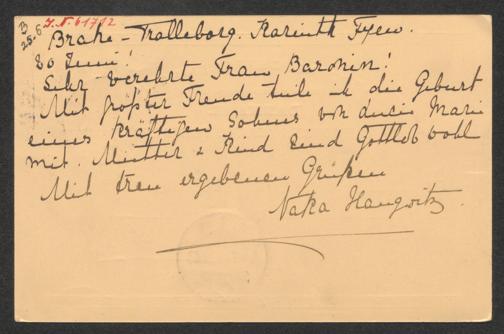 B
25.6. I.N. 61792
Brahe-Trolleborg. Korinth Fyen.
20 Juni!
Sehr verehrte Frau Baronin!
Mit größter Freude teile ich die Geburt
eines kräftigen Sohnes von Marie
mit. Mutter & Kind sind Gottlob wohl
Mit treu ergebenen Grüßen
Haugwitz.